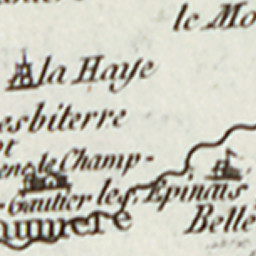 le Mo
la Haye
esbiterre
ene le Champ-
-Gautier les Epinais
Belle